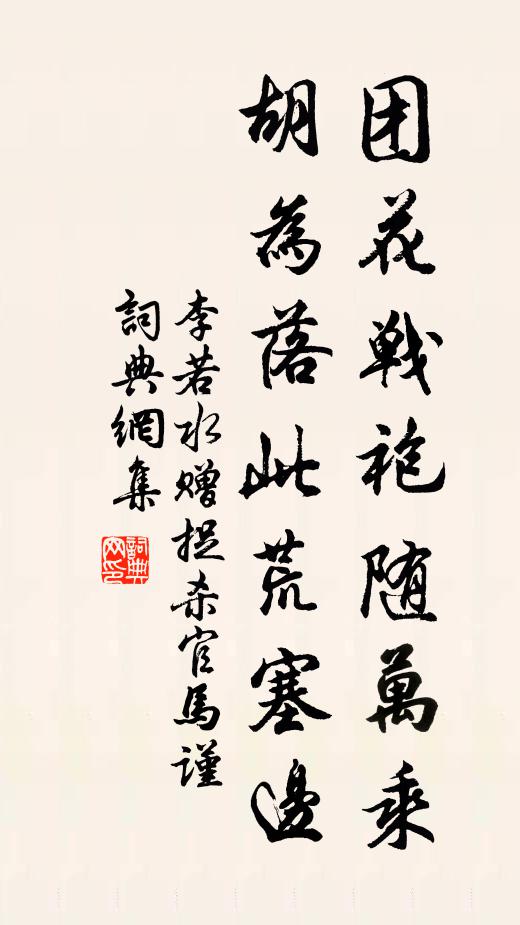 团花戦袍随萬乘
胡為落此荒塞邊
李若水赠捉杀官馬謹
詞典網集
詞典网印